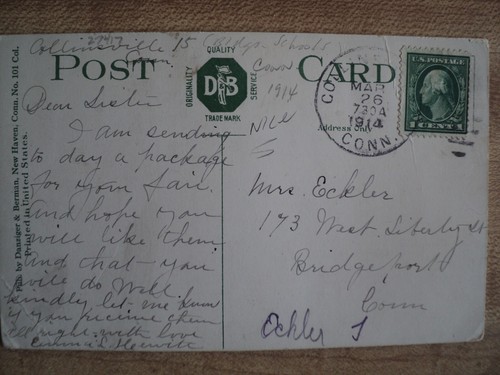 27417
Collinsville 15 Bldgs Schools
Conn
Conn
1914
NICE
5
POST CARD
QUALITY
ORIGINALITY
SERVICE
D B
TRADE MARK
Address Only
MAR
26
730A
1914
CONN.
U.S. POSTAGE
1 CENT 1
Pub. by Danziger & Berman, New Haven, Conn. No. 101 Col.
Printed in United States.
Dear Sister
I am sending
to day a package
for your fair.
And hope you
will like them
and that you
wile do Well
kindly let me know
if you receive them
all right with love
Emma L
Mrs. Eckler
173 West Liberty St
Bridgeport
Conn
Eckler